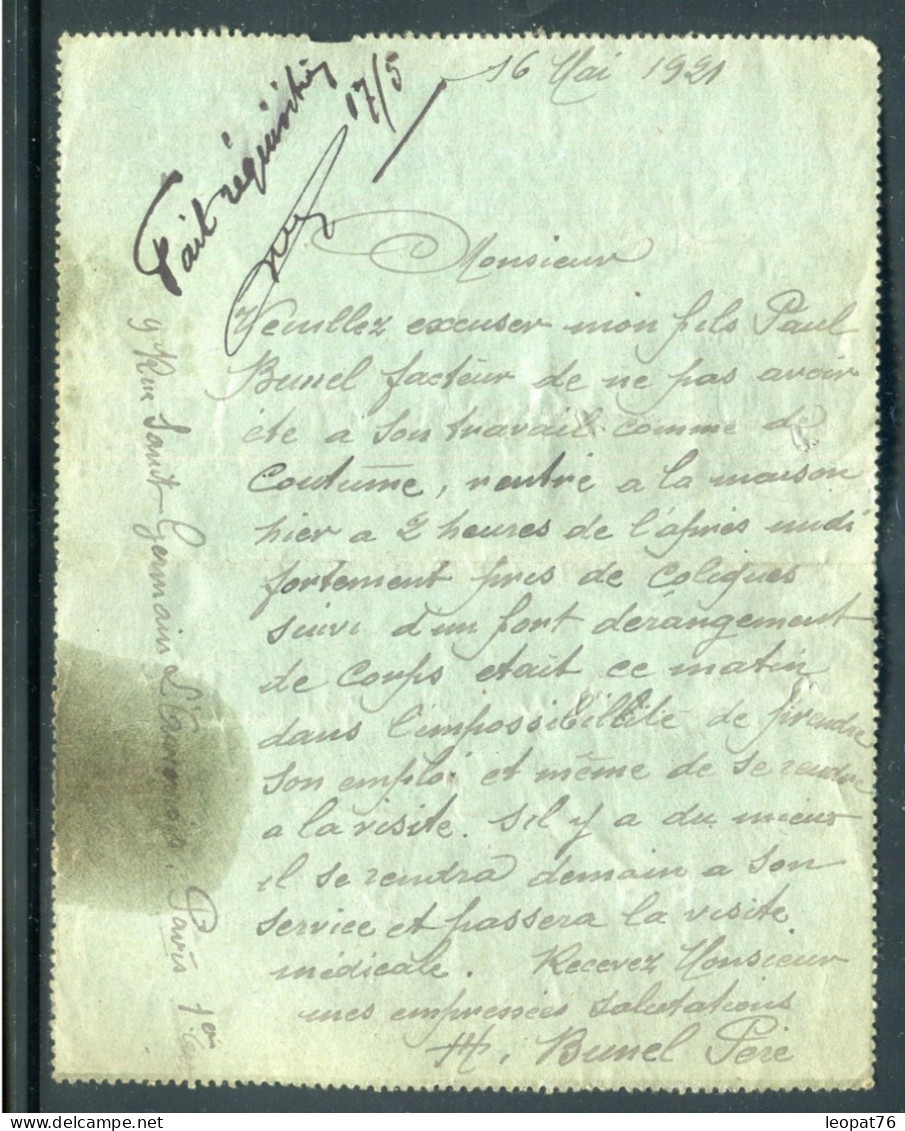 16 Mai 1921
Fait réquisition
17/5
Monsieur
Veuillez excuser mon fils Paul
Bunel facteur de ne pas avoir
été a son travail comme de
Coutume, rentré a la maison
hier a 2 heures de l'après midi
fortement pris de coliques
suivi d'un fort dérangement
de corps etait ce matin
dans l'impossibillité de prendre
son emploi et même de se rendre
a la visite. S'il y a du mieux
il se rendra demain a son
service et passera la visite
médicale. Recevez Monsieur
mes empressées salutations
H. Bunel Père
9 Rue Saint Germain L'Auxerrois, Paris 1er
leopat76